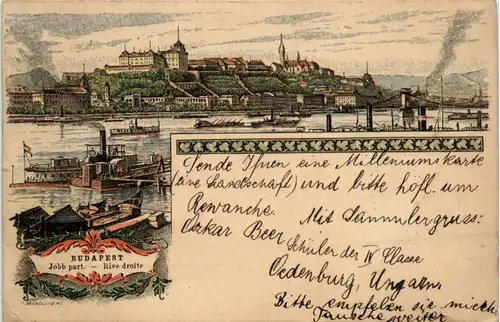 BUDAPEST
Jobb part. — Rive droite
Sende Ihnen eine Milleniumskarte
(eine Landschaft) und bitte höfl. um
Revanche. Mit Sammlergruss:
Oskar Beer
Schüler der IV Classe
Oedenburg, Ungarn.
Bitte empfelen sie mich
Tausche weiter